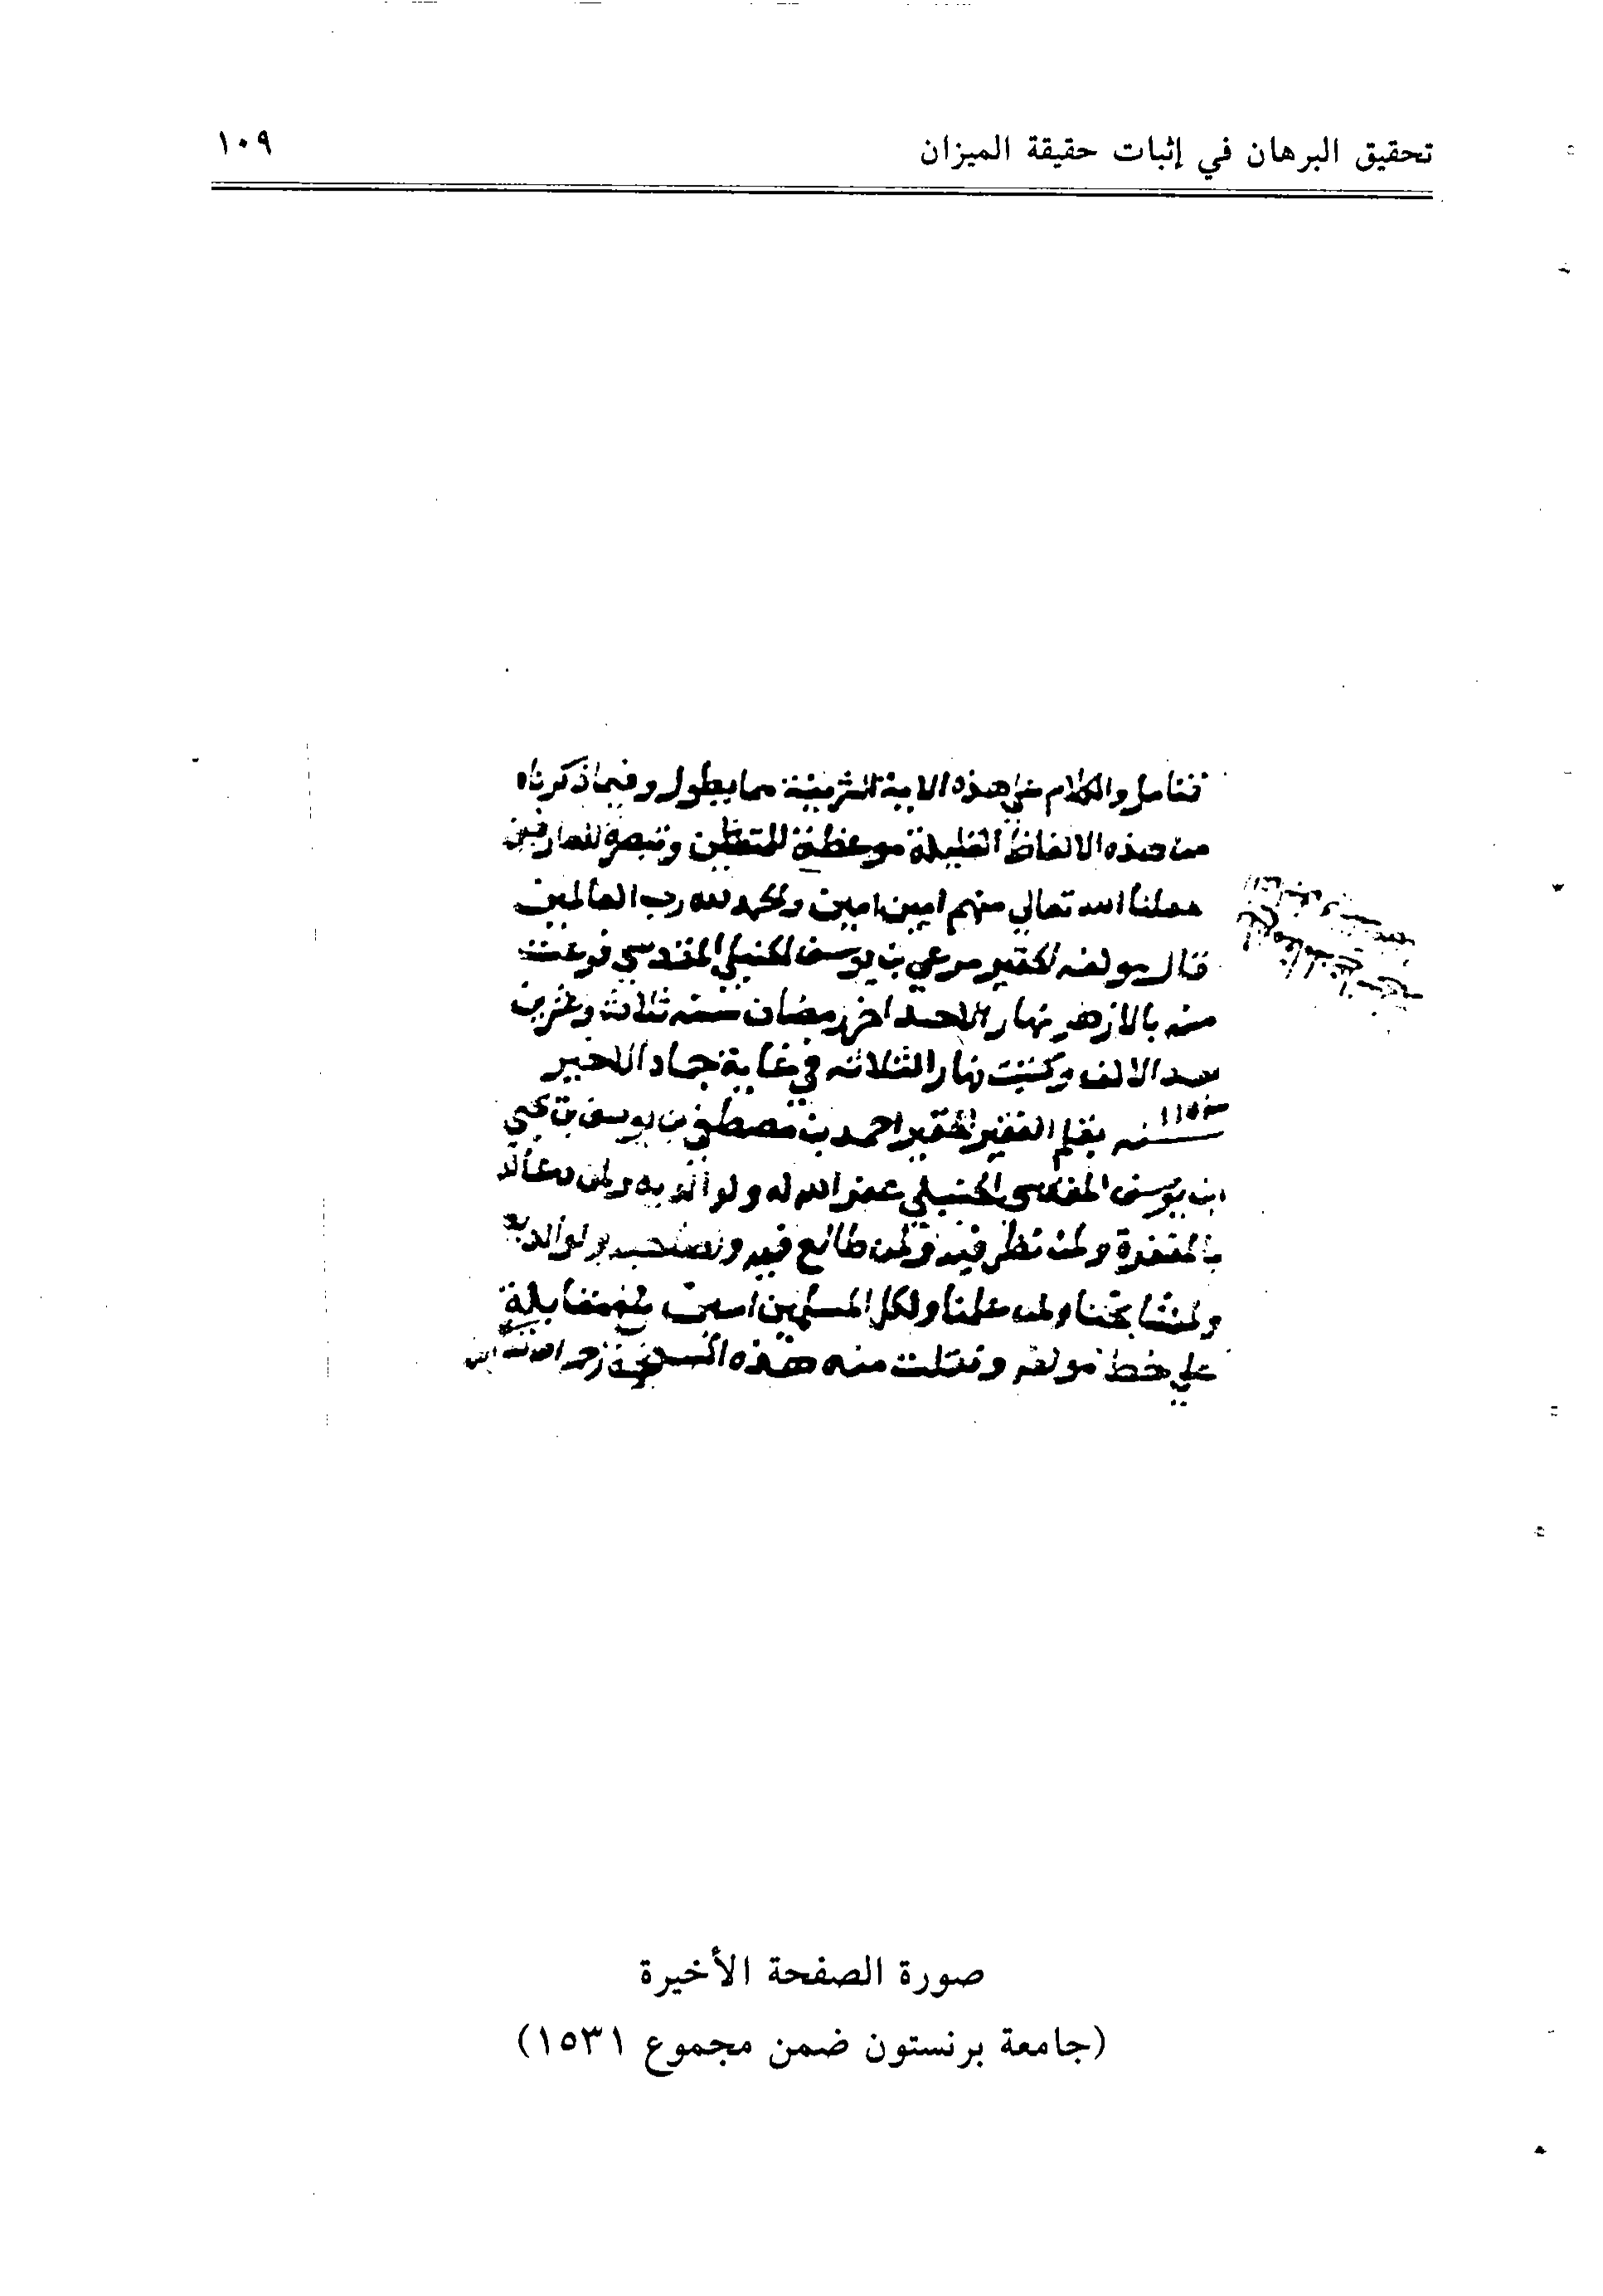 تحقيق البرهان في إثبات حقيقة الميزان
١٠٩
فتامل والكلام على هذه الاية الشريفة مما يطول وفيما ذكرناه
من هذه الالفاظ القليلة موعظة للمتعظين وتبصرة للعارفين
جعلنا الله تعالي منهم امين امين والحمد لله رب العالمين
قال مولفه الحقير مرعي بن يوسف الحنبلي المقدسي فرغت
منه بالازهر نهار الاحد اخر رمضان سنه ثلاث وعشرين
بعد الالف وكتبت نهار الثلاثه في غاية جماد الاخير
سنه بقلم الفقير الحقير احمد بن مصطفي بن يوسف بن يحيي
ابن يوسف المقدسي الحنبلي غفر الله له ولوالديه ولمن دعا له
بالمغفرة ولمن نظر فيه ولمن طالع فيه ولصاحبه ولوالديه
ولمشايخنا ولمن علمنا ولكل المسلمين امين بلغ مقابلة
علي خط مولفه ونقلت منه هذه النسخة
صورة الصفحة الأخيرة
(جامعة برنستون ضمن مجموع ١٥٣١)